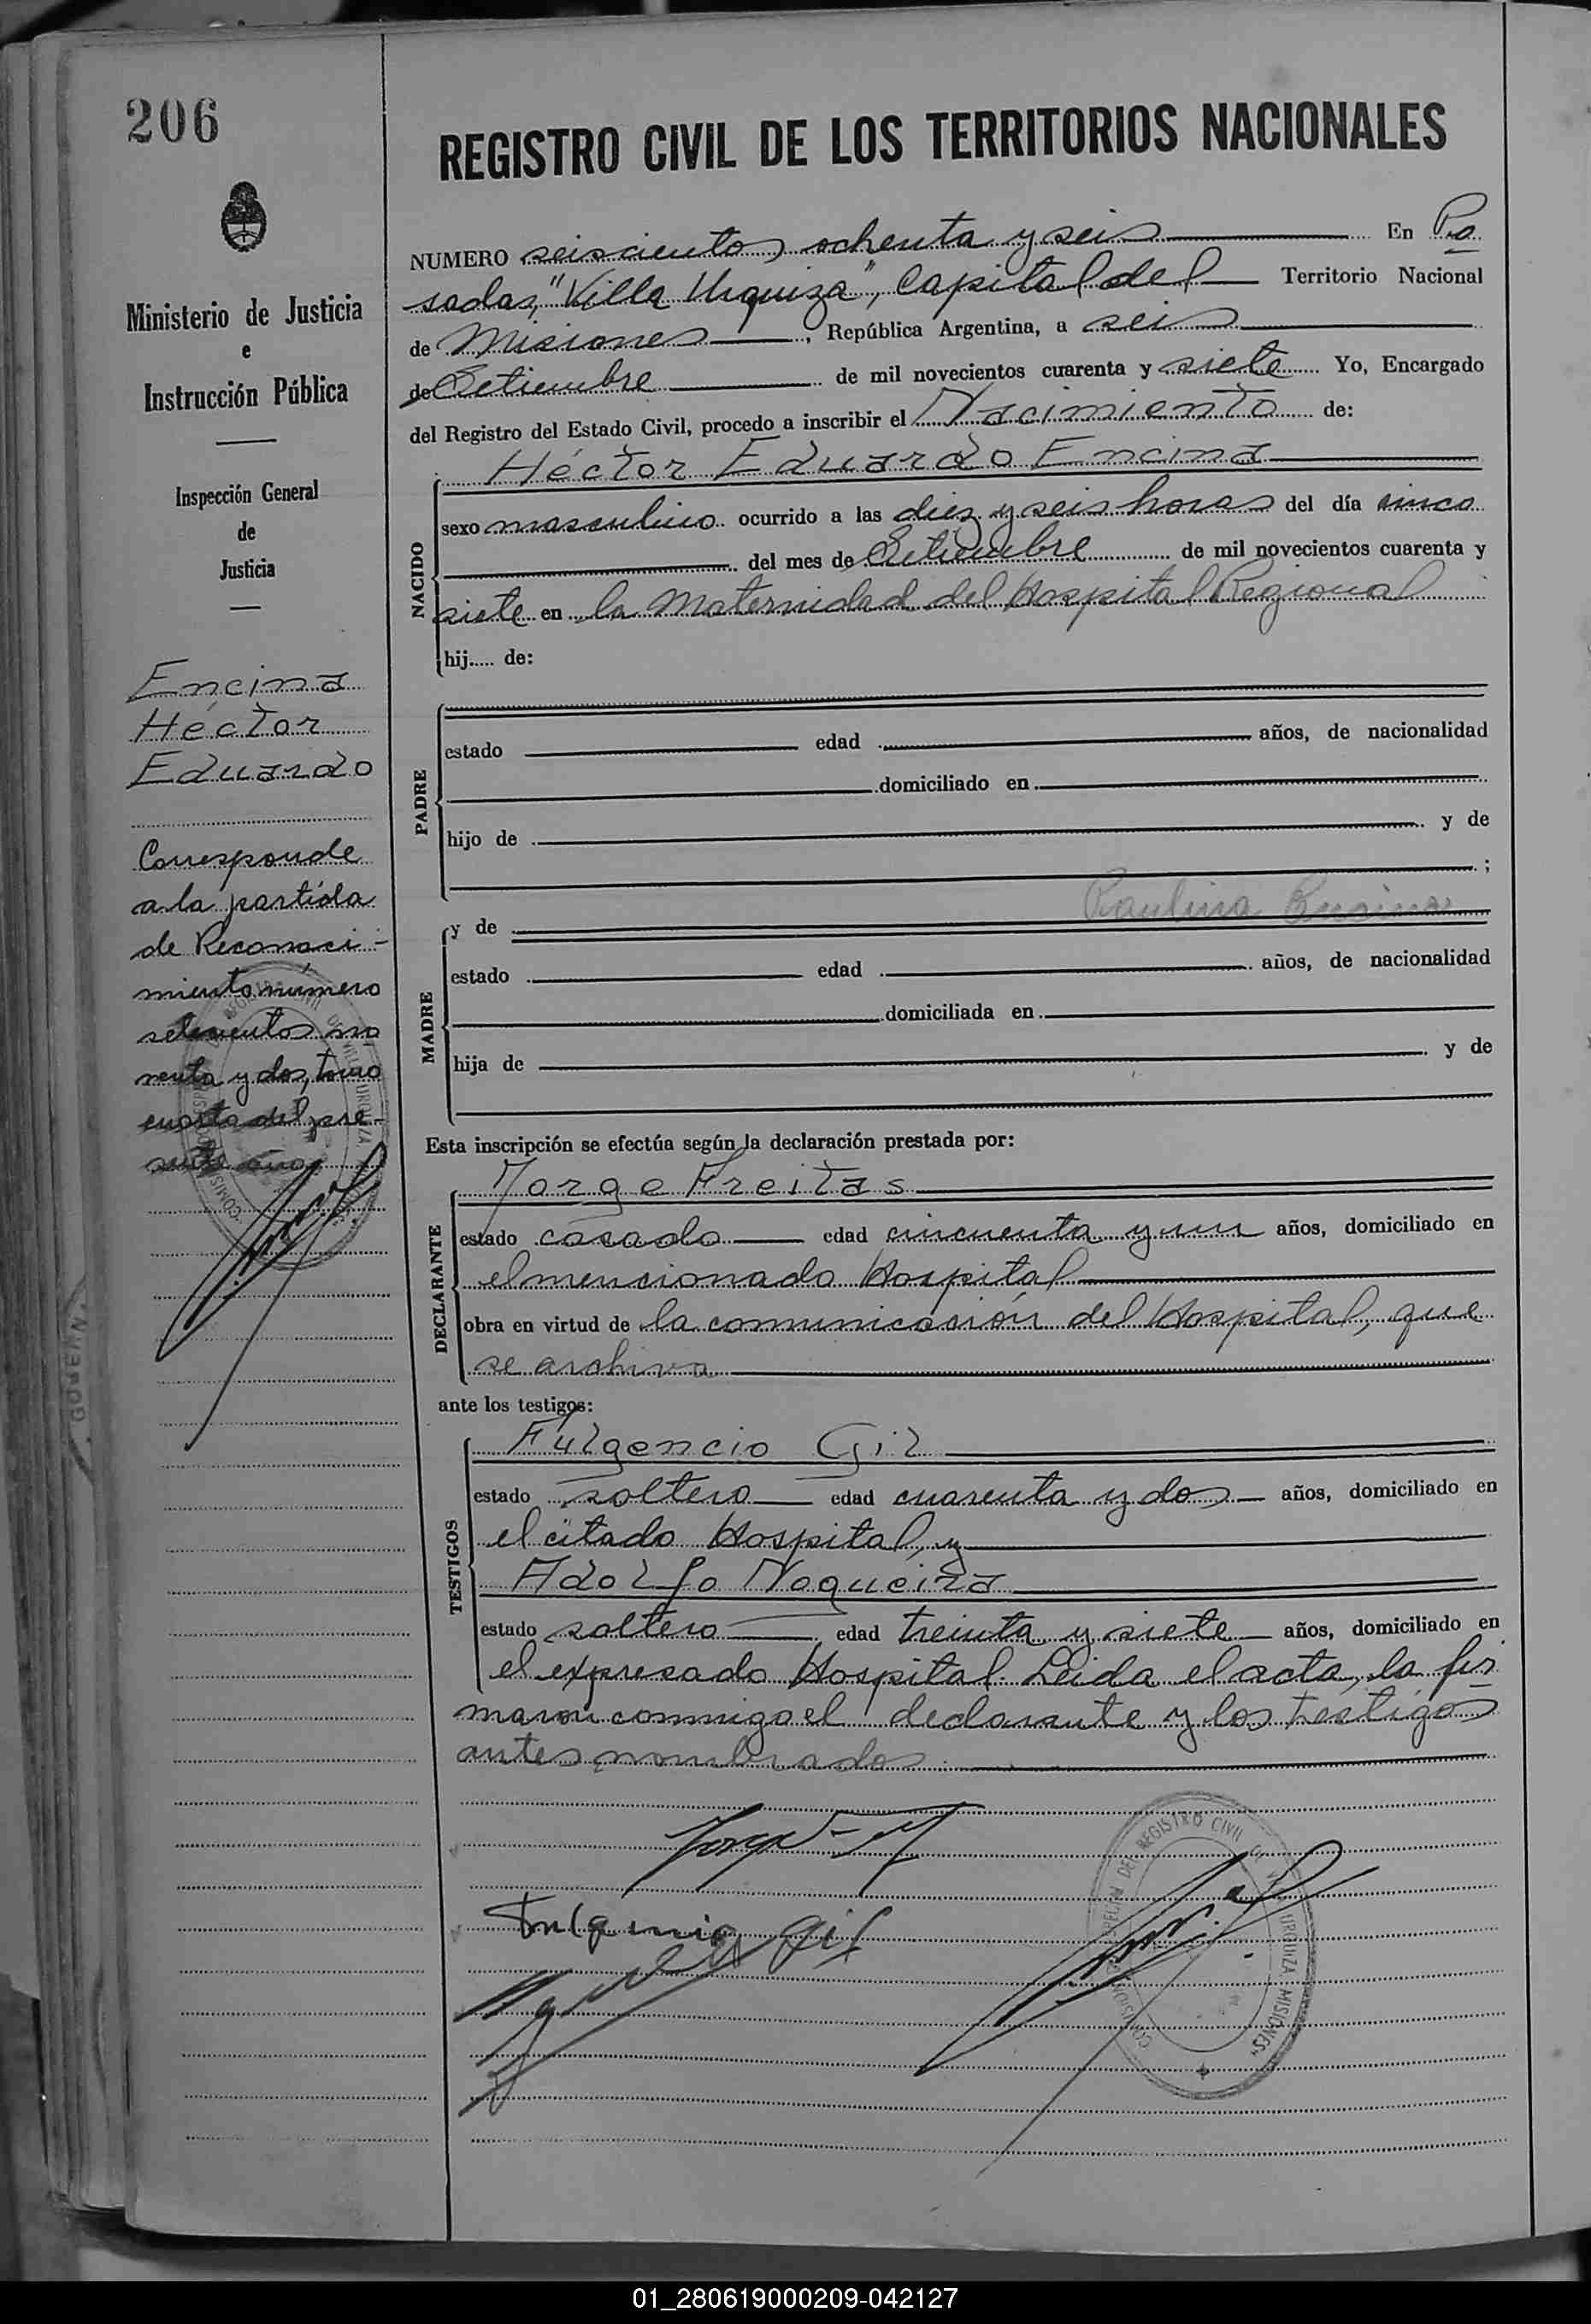 206
REGISTRO CIVIL DE LOS TERRITORIOS NACIONALES
Ministerio de Justicia
e
Instrucción Pública
Inspección General
de
Justicia
Encina
Héctor
Eduardo
Corresponde
a la partida
de Reconoci-
miento número
setecientos no
venta y dos, tomo
cuarto del pre-
sente año
NUMERO seiscientos ochenta y seis En Po
sadas, "Villa Urquiza", Capital del Territorio Nacional
de Misiones, República Argentina, a seis
de Setiembre de mil novecientos cuarenta y siete Yo, Encargado
del Registro del Estado Civil, procedo a inscribir el Nacimiento de:
Héctor Eduardo Encina
NACIDO
sexo masculino ocurrido a las diez y seis horas del día cinco
del mes de Setiembre de mil novecientos cuarenta y
siete en la Maternidad del Hospital Regional
hij..... de:
PADRE
estado edad años, de nacionalidad
domiciliado en
hijo de y de
;
Paulina Encina
MADRE
y de
estado edad años, de nacionalidad
domiciliada en
hija de y de
Esta inscripción se efectúa según la declaración prestada por:
DECLARANTE
Jorge Freitas
estado casado edad cincuenta y un años, domiciliado en
el mencionado Hospital
obra en virtud de la comunicación del Hospital, que
se archiva
ante los testigos:
TESTIGOS
Fulgencio Gil
estado soltero edad cuarenta y dos años, domiciliado en
el citado Hospital, y
Adolfo Nogueira
estado soltero edad treinta y siete años, domiciliado en
el expresado Hospital. Leida el acta, la fir
maron conmigo el declarante y los testigos
antes nombrados
Fulgencio Gil
REGISTRO CIVIL DE VILLA URQUIZA MISIONES
01_280619000209-042127